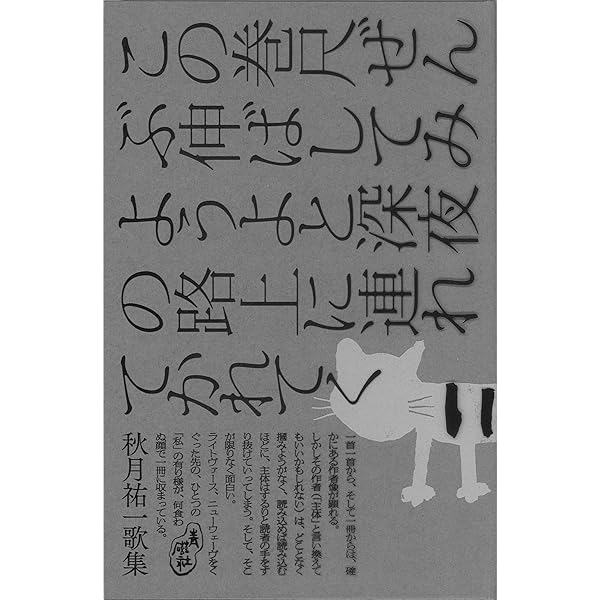 この巻尺ぜん
ぶ伸ばしてみ
ようよと深夜
の路上に連れ
てかれてく
一首一首から、そして一冊からは、確
かにある作者像が顕れる。
しかしその作者（「主体」と言い換えて
もいいかもしれない）は、どことなく
摑みようがなく、読み込めば読み込む
ほどに、主体はするりと読者の手をす
り抜けていってしまう。そして、そこ
が限りなく面白い。
ライトヴァース、ニューウェーヴをく
ぐった先の、ひとつの
「私」の有り様が、何食わ
ぬ顔で一冊に収まっている。
青磁社
秋月祐一歌集